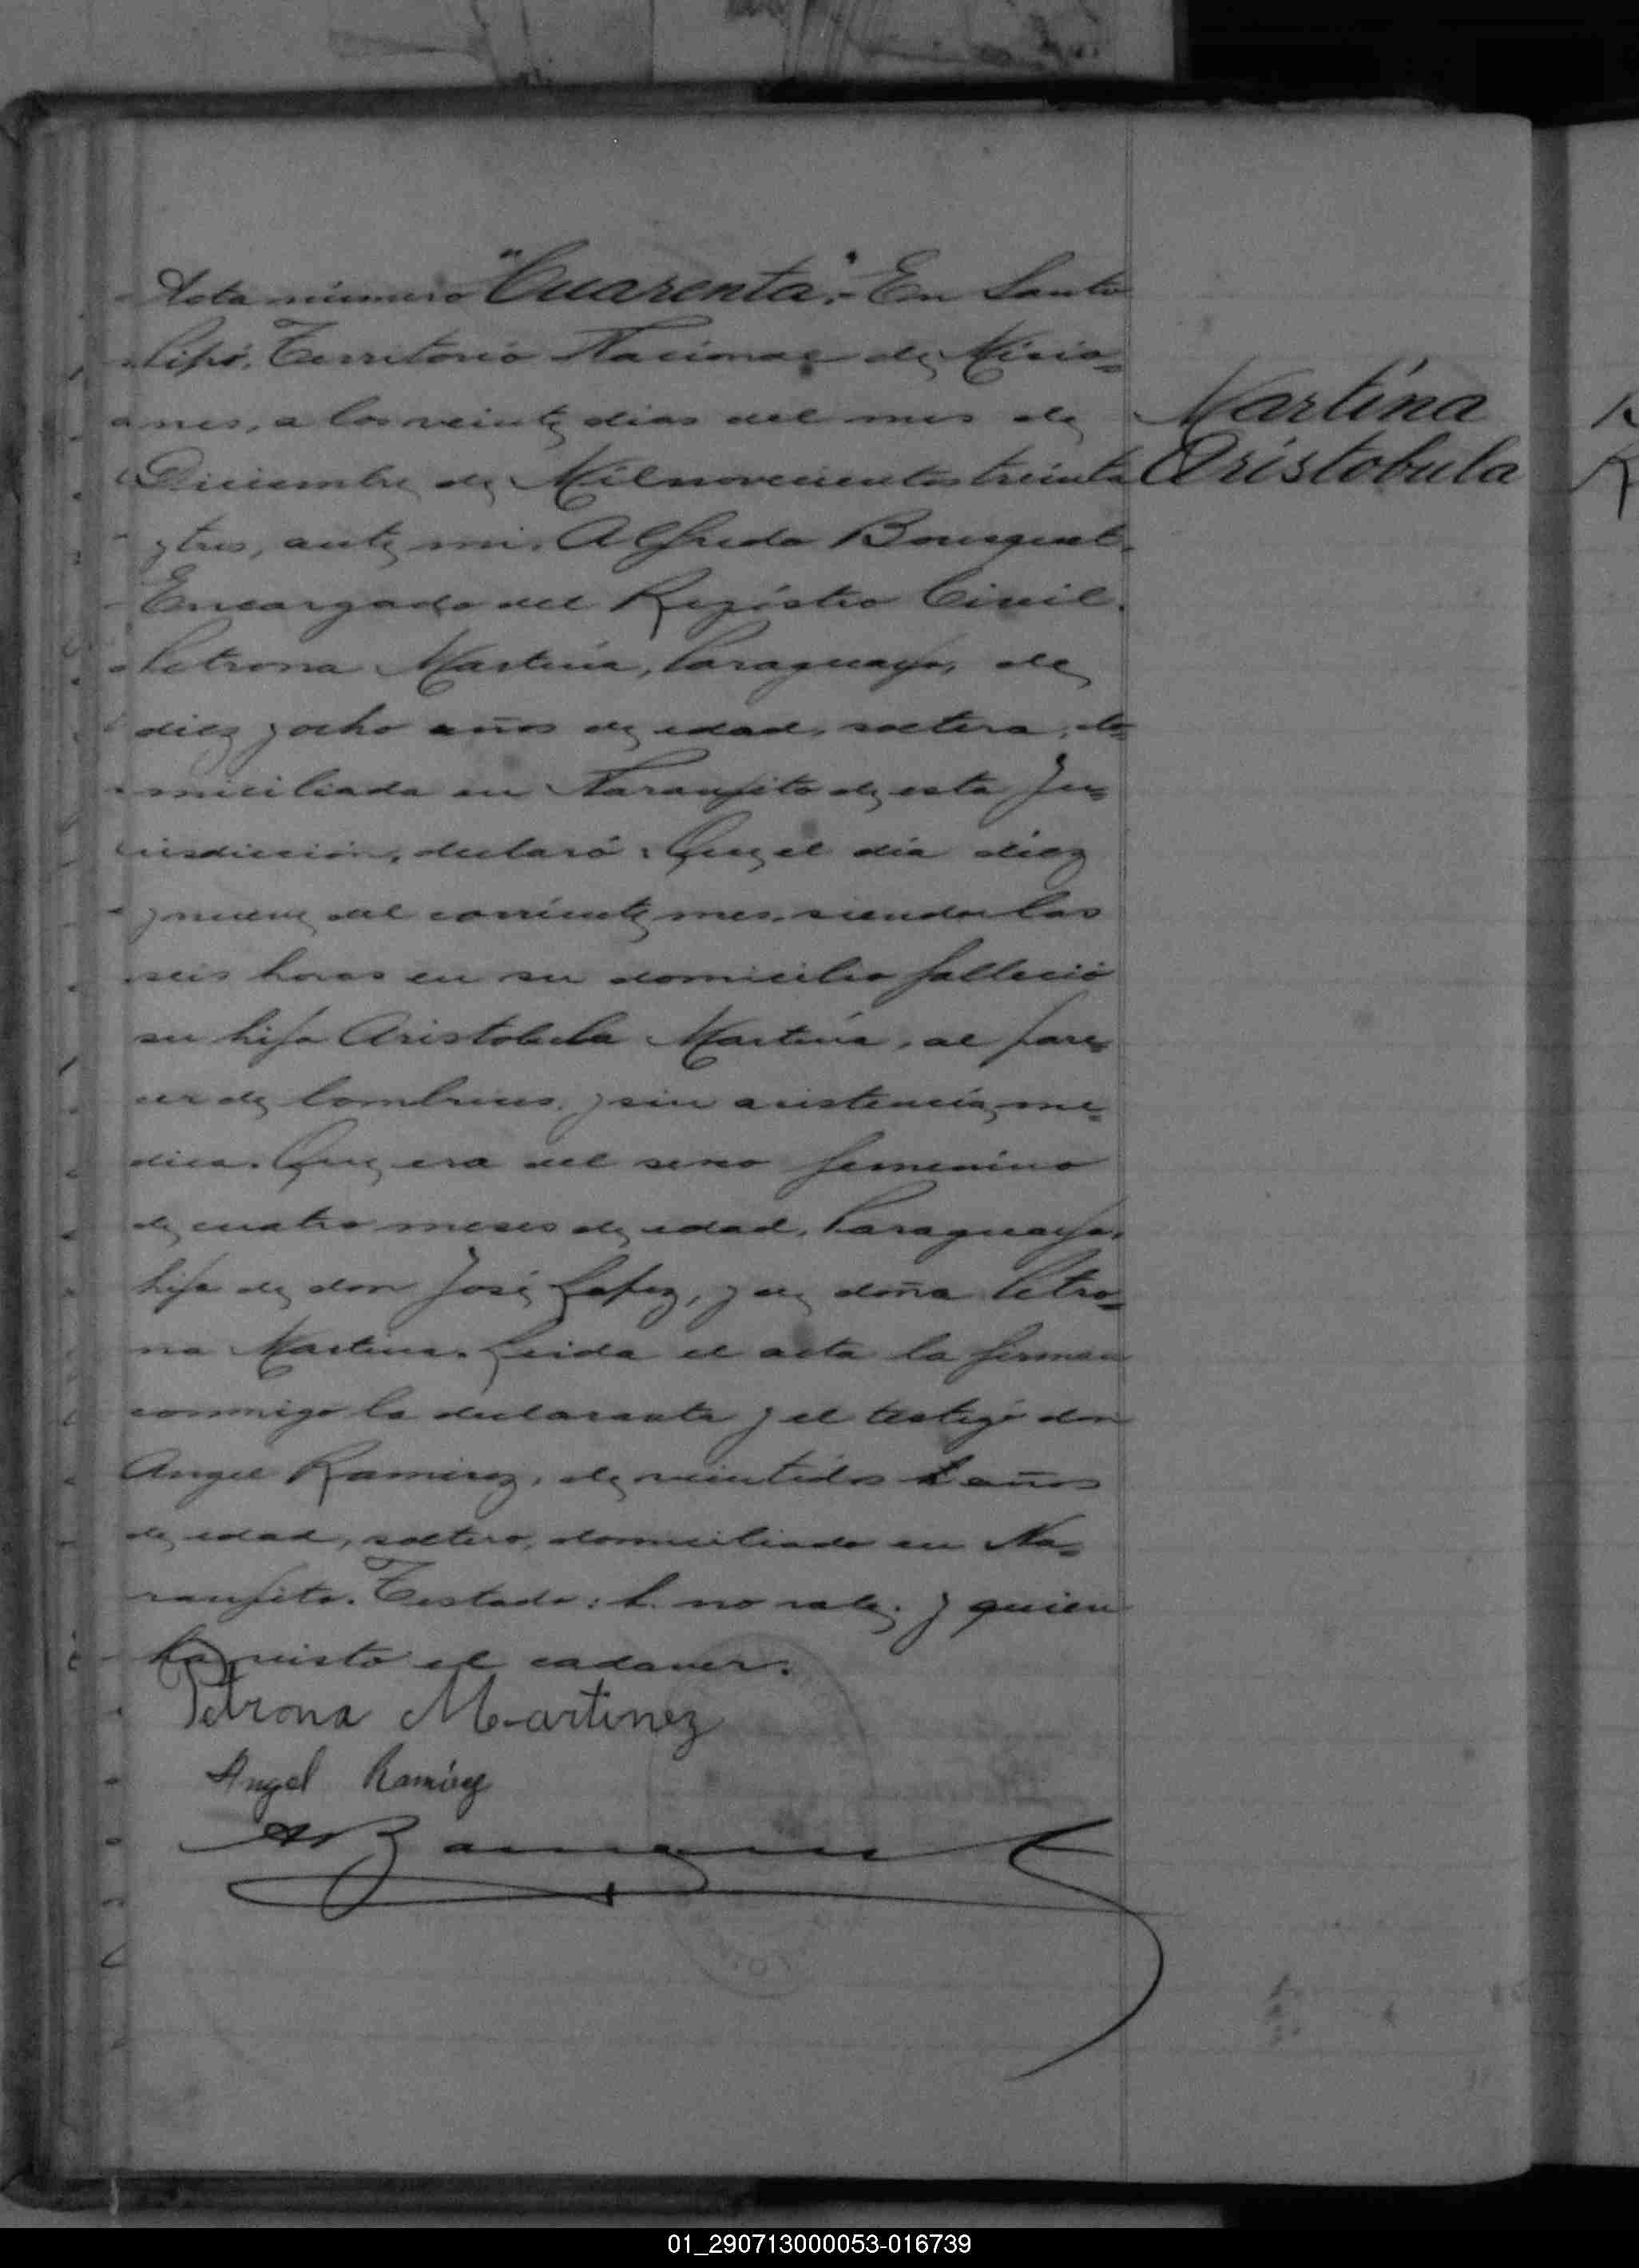 Acta número "Cuarenta".- En Santo
Pipó, Territorio Nacional de Misio=
nes, a los veinte dias del mes de
Diciembre de Mil novecientos treinta
y tres, ante mi, Alfredo Bourquet,
Encargado del Registro Civil.
Petrona Martina, Paraguaya, de
diez y ocho años de edad, soltera, do=
miciliada en Naranjito de esta Ju=
risdicción, declaró: Que el día diez
y nueve del corriente mes, siendo las
seis horas en su domicilio falleció
su hija Aristobula Martina, al pare=
cer de lombrices, y sin asistencia me=
dica. Que era del sexo femenino
de cuatro meses de edad, Paraguaya,
hija de don José Lopez, y de doña Petro=
na Martina. Leida el acta la firman
conmigo la declarante y el testigo don
Angel Ramirez, de veintidos años
de edad, soltero, domiciliado en Na=
ranjito. Testado: h. no vale. y quien
ha visto el cadaver.
Petrona Martinez
Angel Ramirez
Martina
Aristobula
01_290713000053-016739